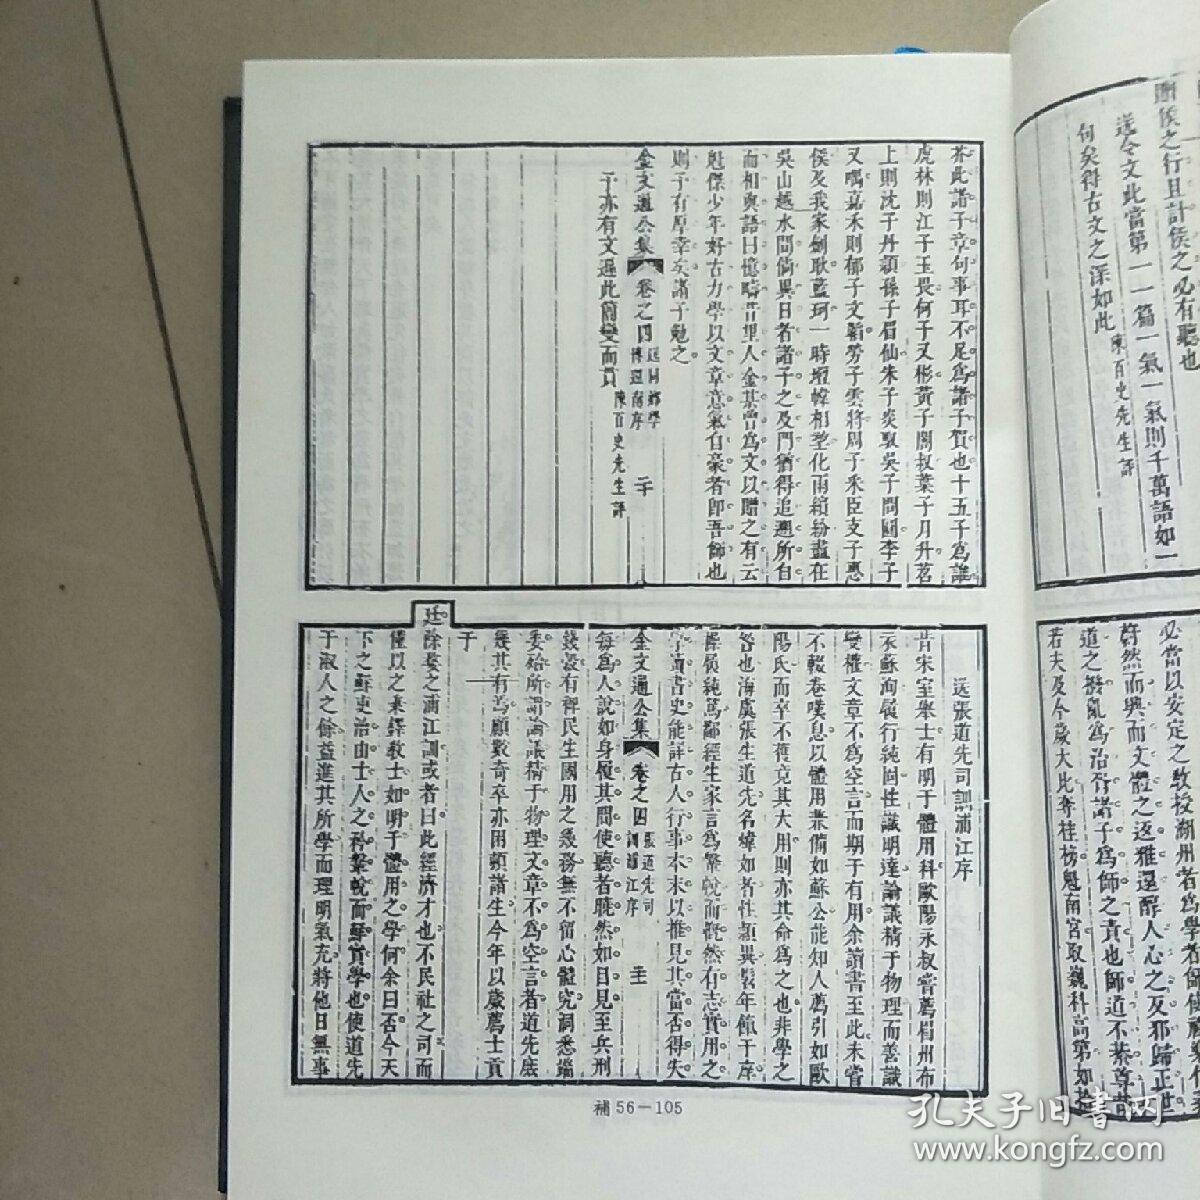 芥此諸子章句事耳不足為諸子賀也十五子為誰
虎林則江子玉畏何子又彬黃子闇叔葉子月升茗
上則沈子丹頴孫子眉仙朱子炎馭吳子問園李子
又嘱嘉禾則郁子文勞子雲將周子釆臣支子惠
侯及我家劍耿藍珂一時壇幃相望化雨繽紛盡在
吳山越水間倘異日者諸子之及門猶得追遡所自
而相與語曰憶疇昔里人金某曾為文以贈之有云
魁傑少年好古力學以文章意氣自豪者即吾師也
則予有厚幸矣諸子勉之
金文通公集 卷之四
于亦有文遍此簡變而貫 陳百史先生評
送張道先司訓浦江序
昔宋室舉士有明于體用科歐陽永叔嘗薦眉州布
衣蘇洵履行純固性識明達論議精于物理而善識
變權文章不為空言而期于有用余讀書至此未嘗
不輟卷嘆息以體用兼備如蘇公能知人薦引如歐
陽氏而卒不獲竟其大用則亦其命為之也非學之
咎也海虞張生道先名煒如者性頴異髫年餼于庠
操履純篤鄙經生家言為鞶帨而慨然有志實用之
學讀書史能詳古人行事本末以推見其當否得失
金文通公集 卷之四 張道先司訓浦江序
每為人說如身履其間使聽者臚然如目見至兵刑
錢穀有裨民生國用之幾務無不留心體究洞悉端
委給所謂論議精于物理文章不為空言者道先底
幾其有焉顧數奇卒亦困頼諸生今年以歲薦士貢
于
廷除婺之浦江訓或者曰此經濟才也不民社之司而
僅以之秉鐸教士如明于體用之學何余曰否今天
下之蘇吏治由士人之矜鞶帨而尠實學也使道先
于淑人之餘益進其所學而理明氣充將他日無事
補 56－105
侯之行且計侯之必有聽也
送令文此當第一一篇一氣一氣則千萬語如一
句矣得古文之深如此 陳百史先生評
必當以安定之教授湖州者為學者師使
蔚然而興而文體之返雅還醇人心之反邪歸正世
道之撥亂為治胥諸子為師之責也師道不綦尊
若夫及今歲大比奪桂榜魁南宮取巍科高第如拾
孔夫子旧书网
www.kongfz.com